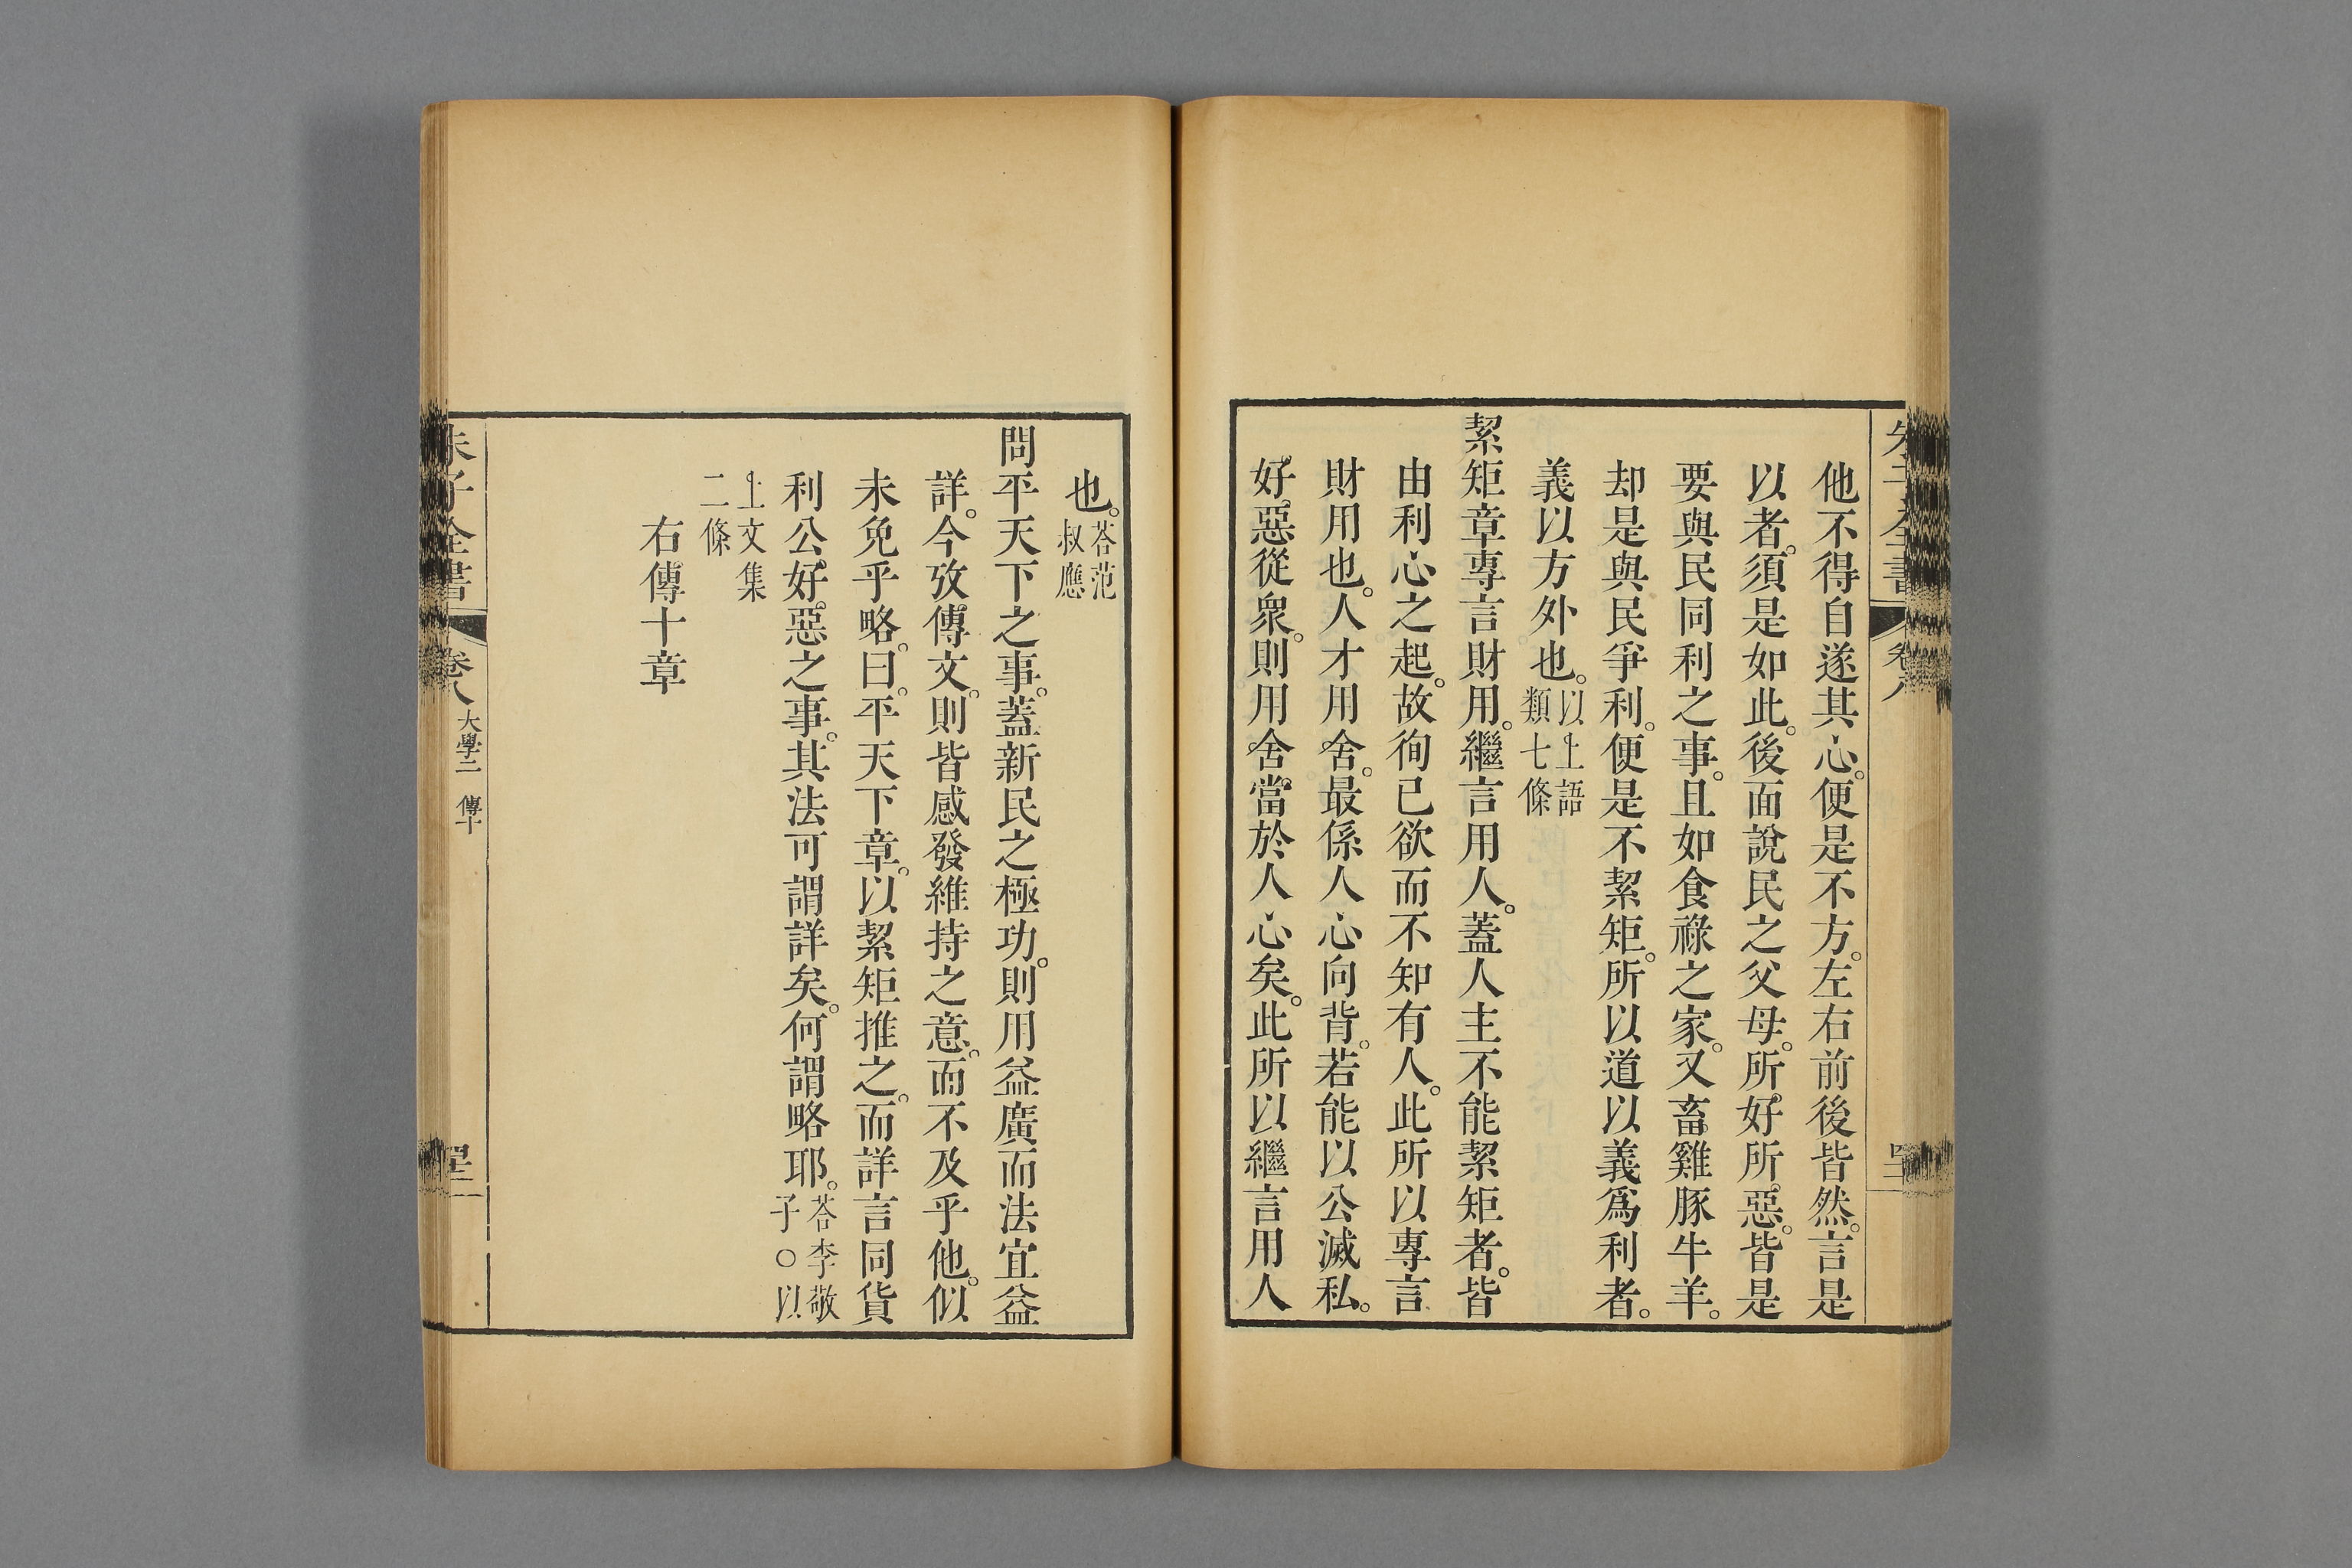 他不得自遂其心。便是不方。左右前後皆然。言是
以者。須是如此。後面說民之父母。所好所惡。皆是
要與民同利之事。且如食祿之家。又畜雞豚牛羊。
却是與民爭利。便是不絜矩。所以道以義爲利者。
義以方外也。以上語類七條
絜矩章專言財用。繼言用人。蓋人主不能絜矩者。皆
由利心之起。故徇己欲而不知有人。此所以專言
財用也。人才用舍。最係人心向背。若能以公滅私。
好惡從衆。則用舍當於人心矣。此所以繼言用人
也。荅范叔應
問平天下之事。蓋新民之極功。則用益廣而法宜益
詳。今攷傳文。則皆感發維持之意。而不及乎他。似
未免乎略。曰。平天下章。以絜矩推之。而詳言同貨
利公好惡之事。其法可謂詳矣。何謂略耶。荅李敬子○以
上文集二條
右傳十章
朱子全書
卷八
大學二 傳十